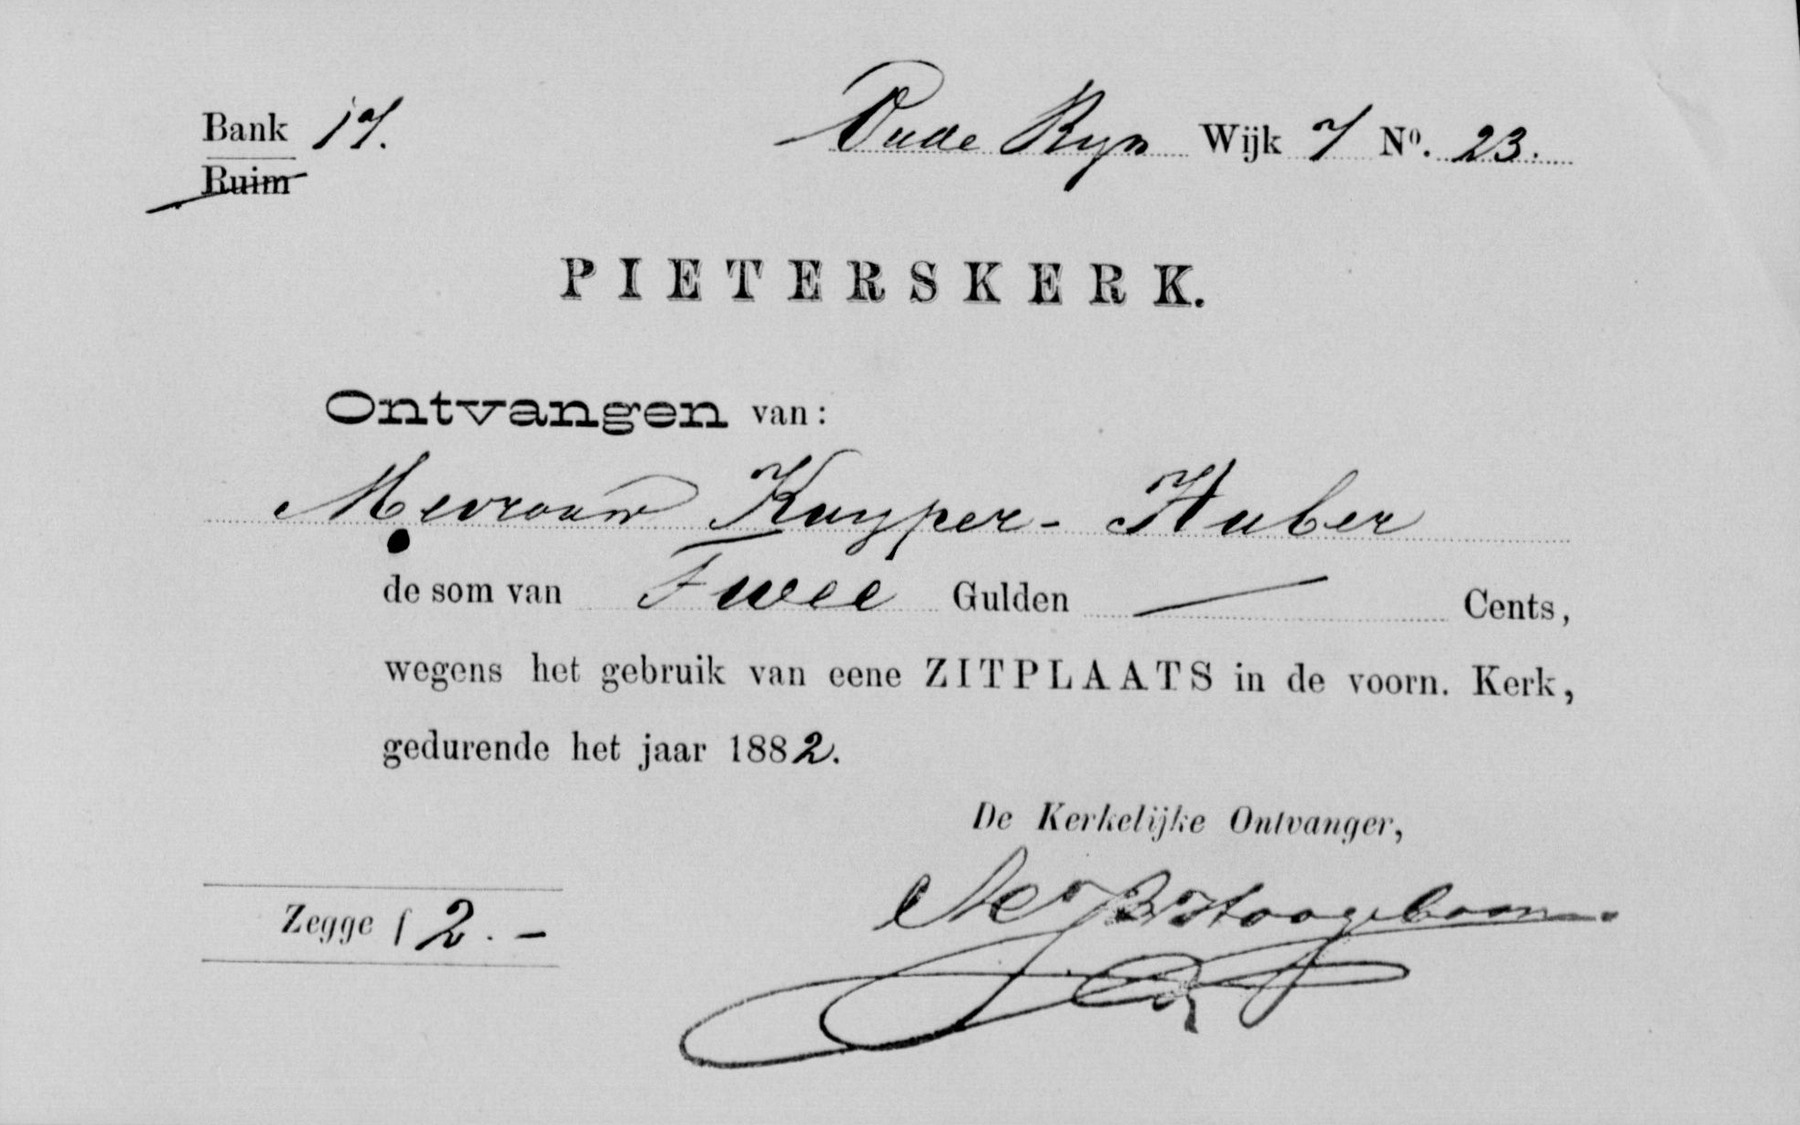 Bank 17.
Oude Ryn Wijk 7 No. 23.
Ruim
PIETERSKERK.
Ontvangen van:
Mevrouw Kuyper-Huber
de som van Twee Gulden — Cents,
wegens het gebruik van eene ZITPLAATS in de voorn. Kerk,
gedurende het jaar 1882.
De Kerkelijke Ontvanger,
Hoogeboom
Zegge f 2.-